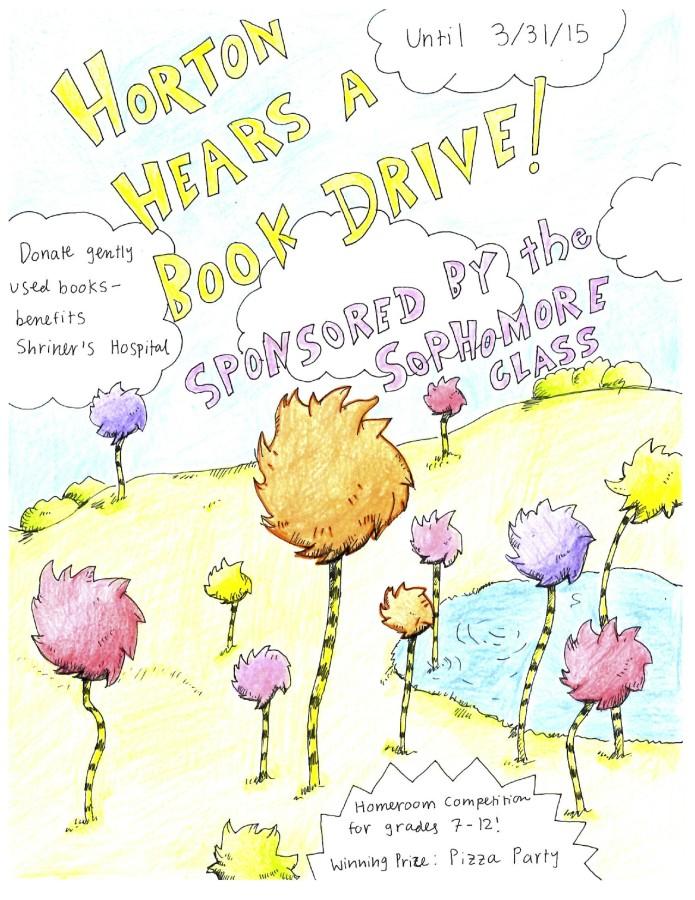 Until 3/31/15
HORTON
HEARS A
BOOK DRIVE!
Donate gently
used books-
benefits
Shriner's Hospital
SPONSORED BY the
SOPHOMORE
CLASS
Homeroom Competition
for grades 7-12!
Winning Prize: Pizza Party